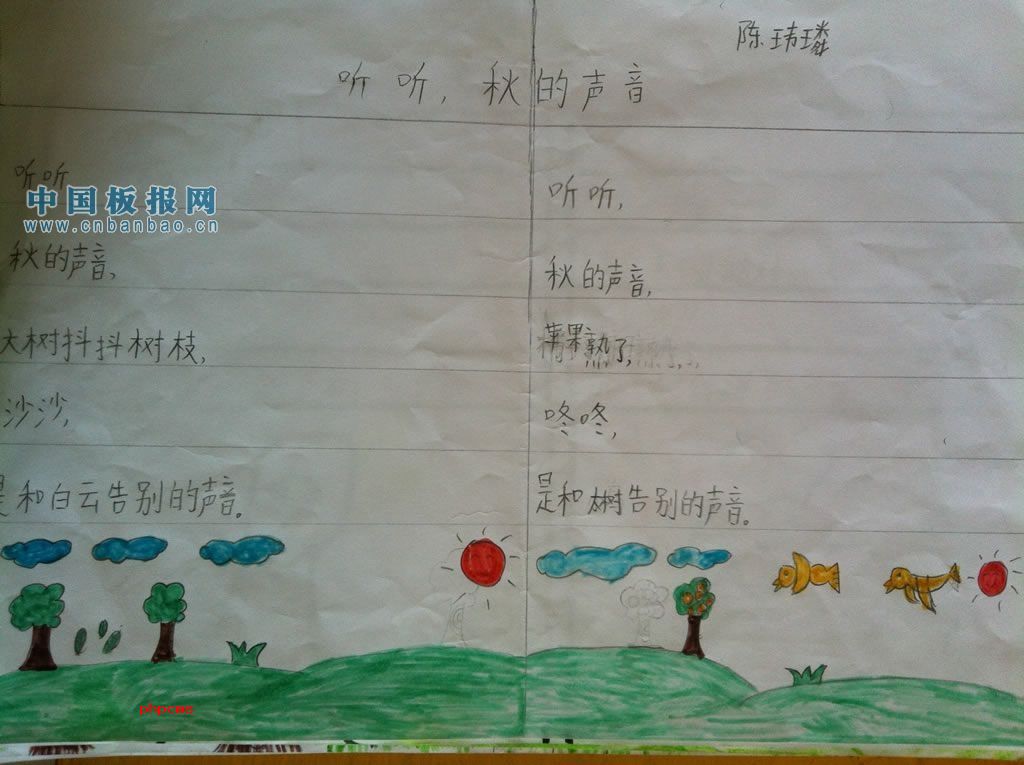 陈玮璨
听听，秋的声音
听听
中国板报网
www.cnbanbao.cn
秋的声音，
大树抖抖树枝，
沙沙，
是和白云告别的声音。
听听，
秋的声音，
苹果熟了，
咚咚，
是和大树告别的声音。